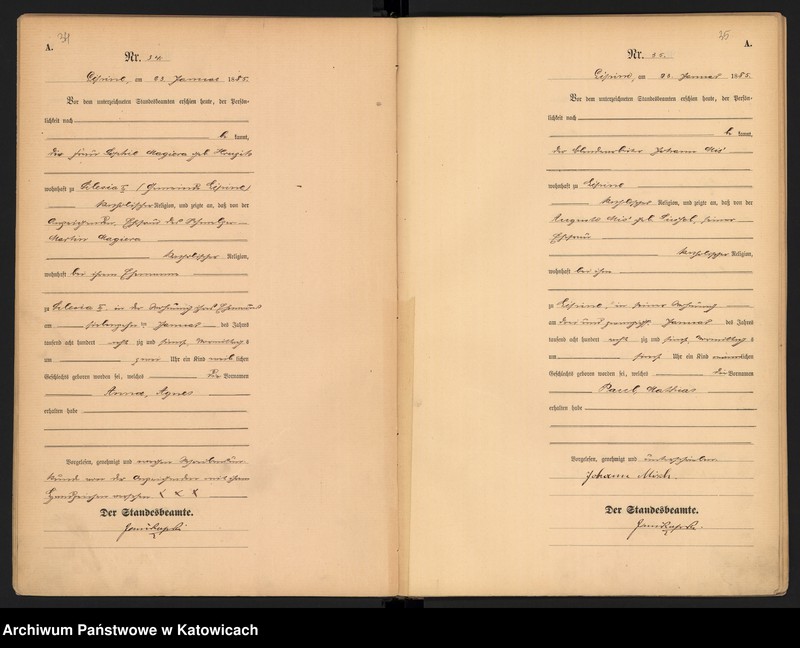 A. 34
Nr. 34.
Lipine, am 23 Januar 1885.
Vor dem unterzeichneten Standesbeamten erschien heute, der Persön-
lichkeit nach
be kannt,
die Frau Sophie Magiera geb
wohnhaft zu Silesia (Gemeinde Lipine)
katholischer Religion, und zeigte an, daß von der
Ehefrau des
Martin Magiera
katholischer Religion,
wohnhaft bei ihrem Ehemann
zu Silesia in der Wohnung ihres Ehemanns
am siebzehn ten Januar des Jahres
tausend acht hundert acht zig und fünf, Vormittags
um zwei Uhr ein Kind weib lichen
Geschlechts geboren worden sei, welches die Vornamen
Anna, Agnes
erhalten habe
Vorgelesen, genehmigt und wegen Schreibensun-
kunde von der Anzeigenden mit ihrem
Handzeichen versehen X X X
Der Standesbeamte.
35 A.
Nr. 35.
Lipine, am 23. Januar 1885.
Vor dem unterzeichneten Standesbeamten erschien heute, der Persön-
lichkeit nach
be kannt,
der Johann
wohnhaft zu Lipine
katholischer Religion, und zeigte an, daß von der
Auguste geb. seiner
Ehefrau
katholischer Religion,
wohnhaft bei ihm
zu Lipine, in seiner Wohnung
am drei und zwanzigsten Januar des Jahres
tausend acht hundert acht zig und fünf, Vormittags
um fünf Uhr ein Kind männlichen
Geschlechts geboren worden sei, welches die Vornamen
Paul, Mathias
erhalten habe
Vorgelesen, genehmigt und unterschrieben
Johann Misch.
Der Standesbeamte.
Archiwum Państwowe w Katowicach